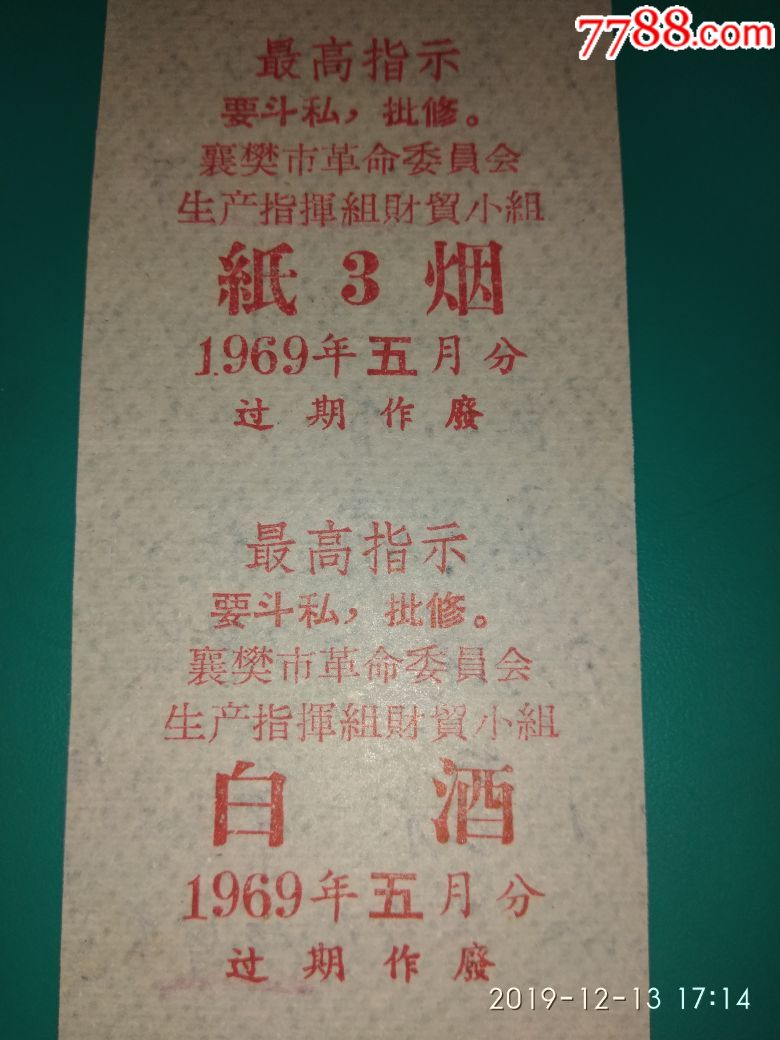 7788.com
最高指示
要斗私，批修。
襄樊市革命委員会
生产指揮組財貿小組
紙3烟
1969年五月分
过期作廢
最高指示
要斗私，批修。
襄樊市革命委員会
生产指揮組財貿小組
白酒
1969年五月分
过期作廢
2019-12-13 17:14